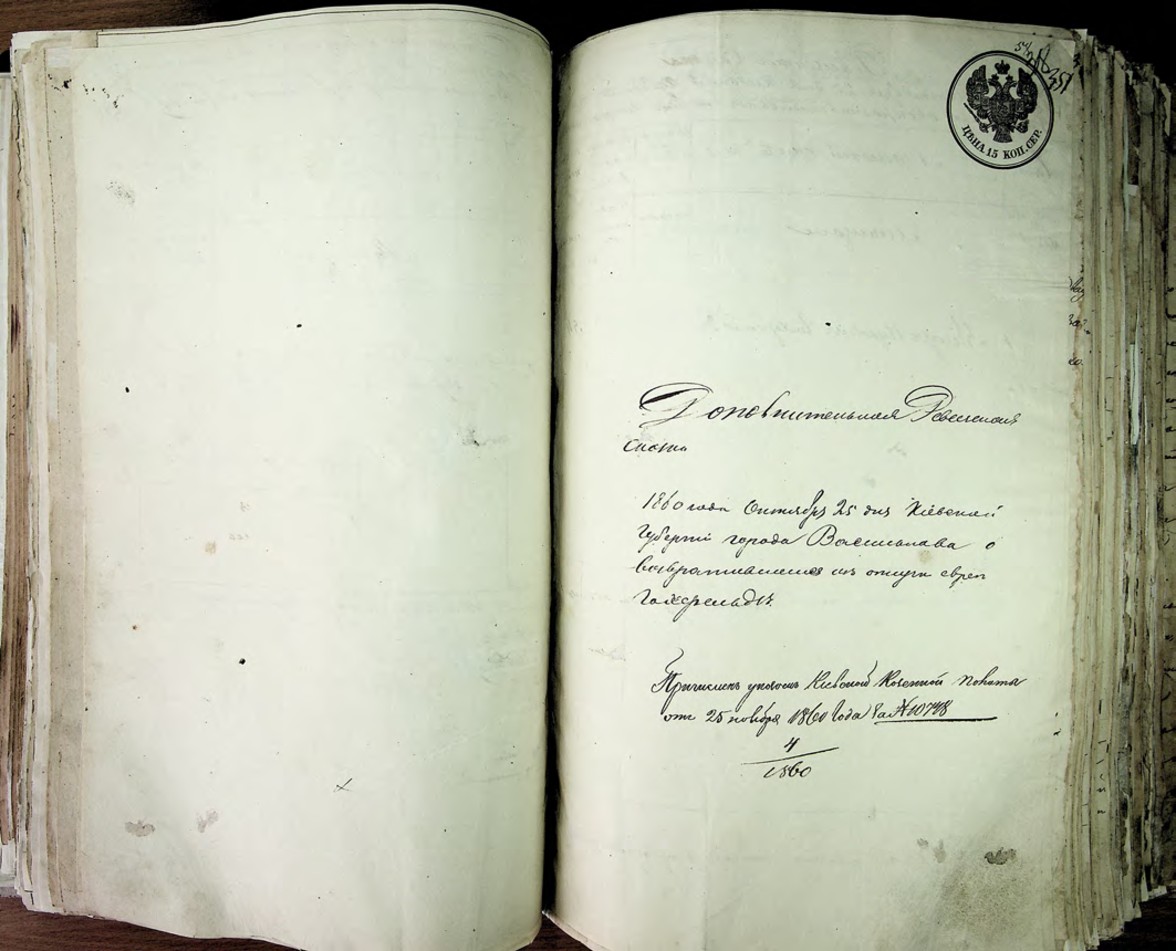 351
ЦѢНА 15 КОП. СЕР.
Дополнительная Ревизская
сказка
1860 года Октября 25 дня Кіевской
Губерніи города Василькова о
возвратившемся изъ отлучки евреѣ
Причисленъ указомъ Кіевской Казенной Палаты
отъ 25 ноября 1860 года за № 10748
4
1860